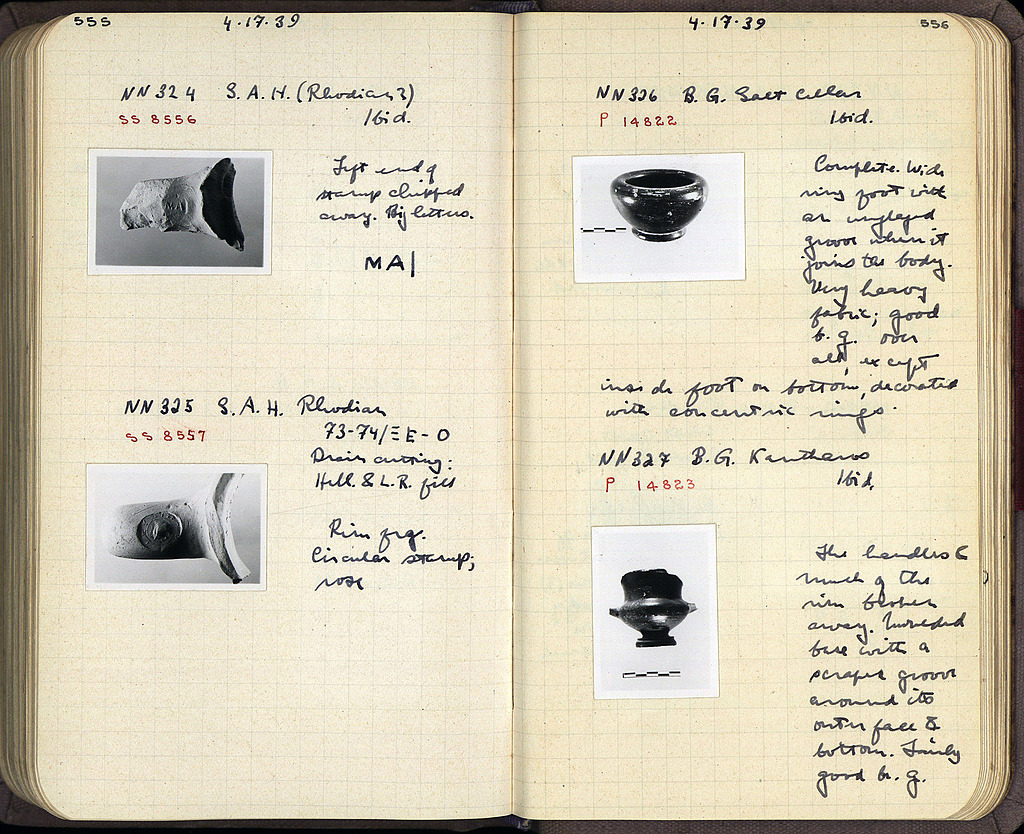 555
4·17·39
NN 324 S.A.H. (Rhodian?)
SS 8556 Ibid.
Left end of
stamp chipped
away. Big letters.
MA|
NN 325 S.A.H. Rhodian
SS 8557 73-74/ΞE-O
Drain cutting:
Hell. & L.R. fill
Rim frg.
Circular stamp;
rose
4·17·39
556
NN 326 B.G. Salt Cellar
P 14822 Ibid.
Complete. Wide
ring foot with
an unglazed
groove where it
joins the body.
Very heavy
fabric; good
b.g. over
all, except
inside foot on bottom, decorated
with concentric rings.
NN 327 B.G. Kantharos
P 14823 Ibid.
The handles &
much of the
rim broken
away. Moulded
base with a
scraped groove
around its
outer face &
bottom. Fairly
good b.g.